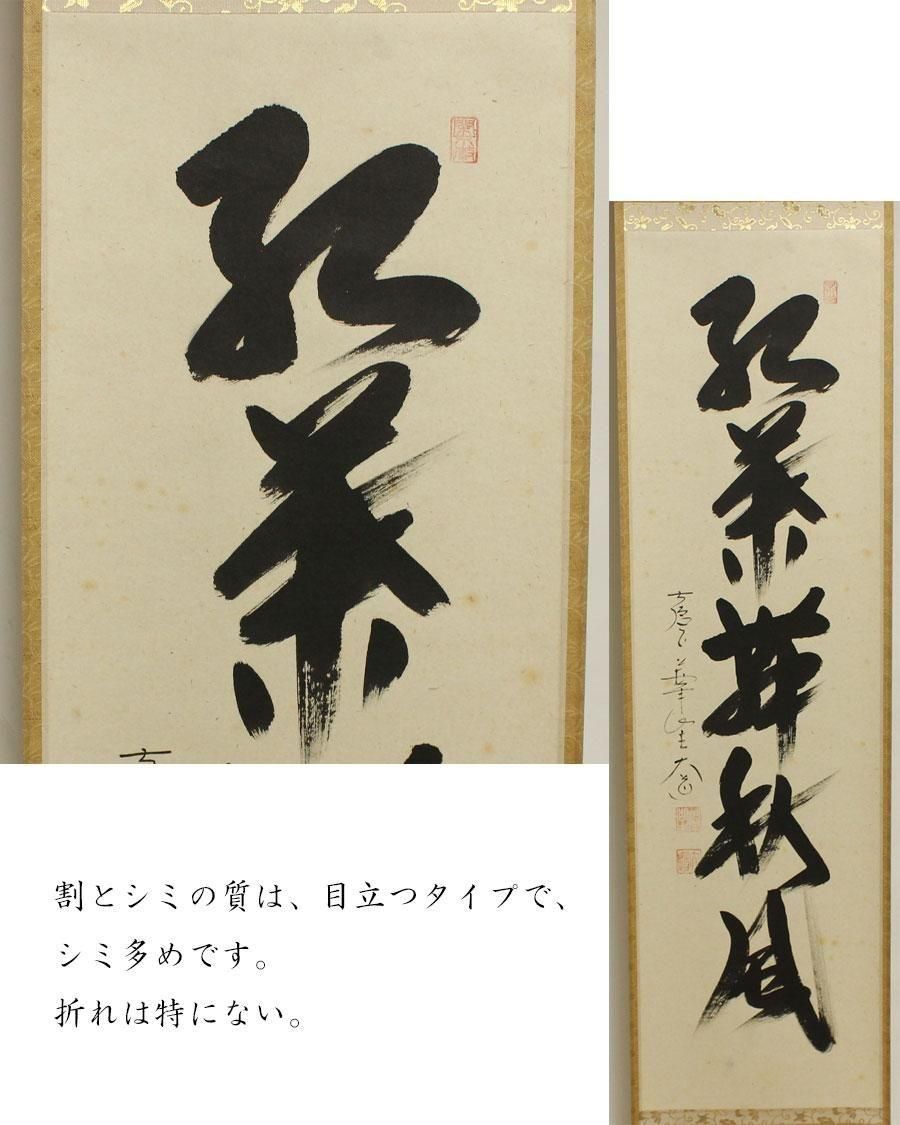 紅葉舞秋風
割とシミの質は、目立つタイプで、
シミ多めです。
折れは特にない。